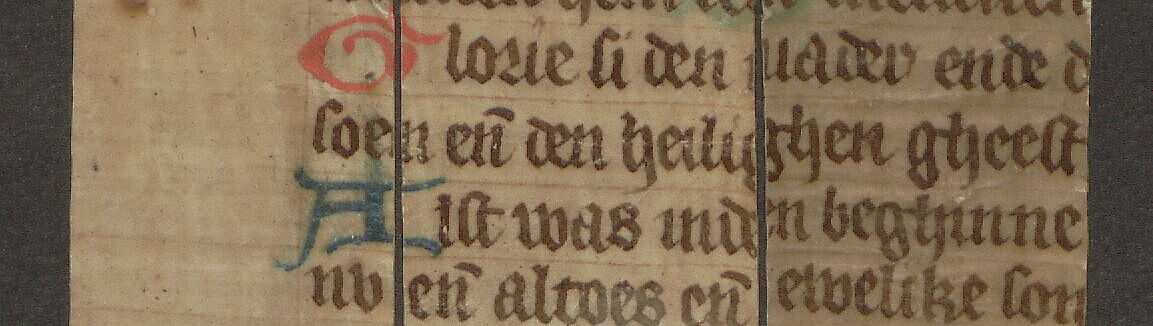 Glorie si den uader ende d
soen en̄ den heilighen gheest
Aist was inden beghinne
nv en̄ altoes en̄ ewelike son